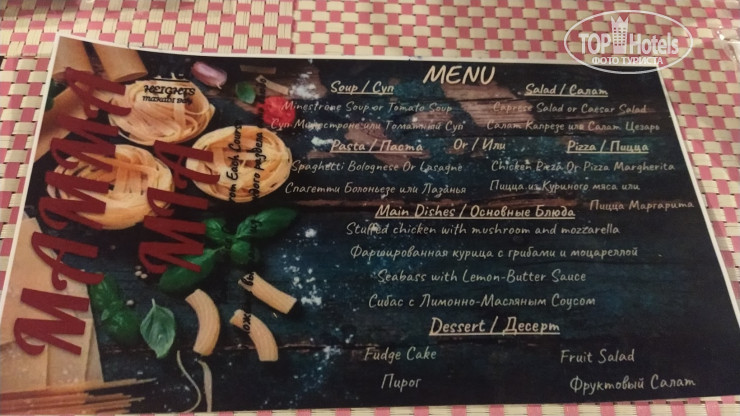 TOP Hotels
ФОТО ТУРИСТА
MENU
HEIGHTS
MAMMA
MIA
from Each Course
Soup / Суп
Minestrone Soup or Tomato Soup
Суп Минестроне или Томатный Суп
Salad / Салат
Caprese Salad or Caesar Salad
Салат Капрезе или Салат Цезарь
Pasta / Паста Or / Или Pizza / Пицца
Spaghetti Bolognese Or Lasagne
Спагетти Болоньезе или Лазанья
Chicken Pizza Or Pizza Margherita
Пицца из Куриного мяса или
Пицца Маргарита
Main Dishes / Основные Блюда
Stuffed chicken with mushroom and mozzarella
Фаршированная курица с грибами и моцареллой
Seabass with Lemon-Butter Sauce
Сибас с Лимонно-Масляным Соусом
Dessert / Десерт
Fudge Cake
Пирог
Fruit Salad
Фруктовый Салат